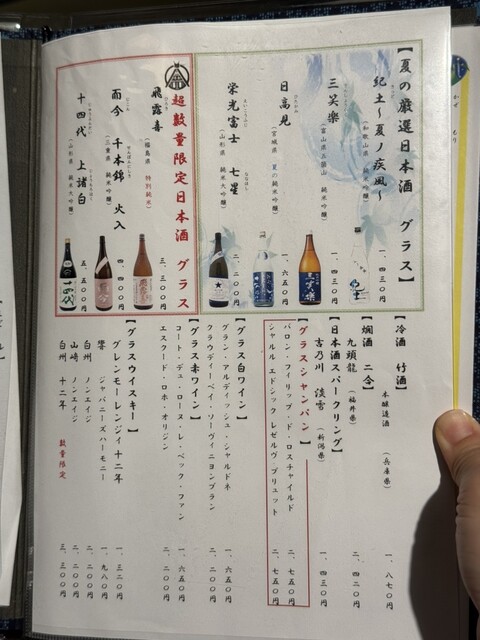 【夏の厳選日本酒 グラス】
紀土～夏ノ疾風～
(和歌山県 純米吟醸)
一、四三〇円
三笑楽
(富山県五箇山 純米吟醸)
一、四三〇円
日高見
(宮城県 夏の純米吟醸)
一、六五〇円
栄光富士 七星
(山形県 純米大吟醸)
二、二〇〇円
超数量限定日本酒 グラス
飛露喜
(福島県 特別純米)
三、三〇〇円
而今 千本錦 火入
(三重県 純米吟醸)
四、四〇〇円
十四代 上諸白
(山形県 純米大吟醸)
五、五〇〇円
【冷酒 竹酒】
本醸造酒 (兵庫県)
一、八七〇円
【燗酒 二合】
九頭龍 (福井県)
二、四二〇円
【日本酒スパークリング】
吉乃川 淡雪 (新潟県)
一、四三〇円
【グラスシャンパン】
バロン・フィリップ・ド・ロスチャイルド
二、七五〇円
シャルル エドシック レゼルヴ ブリュット
二、七五〇円
【グラス白ワイン】
グラン・アルディッシュ・シャルドネ
一、六五〇円
クラウディーベイ・ソーヴィニヨンブラン
二、二〇〇円
【グラス赤ワイン】
コート・デュ・ローヌ・レ・ベック・ファン
一、六五〇円
エスクード・ロホ・オリジン
二、二〇〇円
【グラスウイスキー】
グレンモーレンジイ 十二年
一、三二〇円
響 ジャパニーズハーモニー
一、九八〇円
白州 ノンエイジ
二、二〇〇円
山崎 ノンエイジ
二、二〇〇円
白州 十二年 数量限定
三、三〇〇円